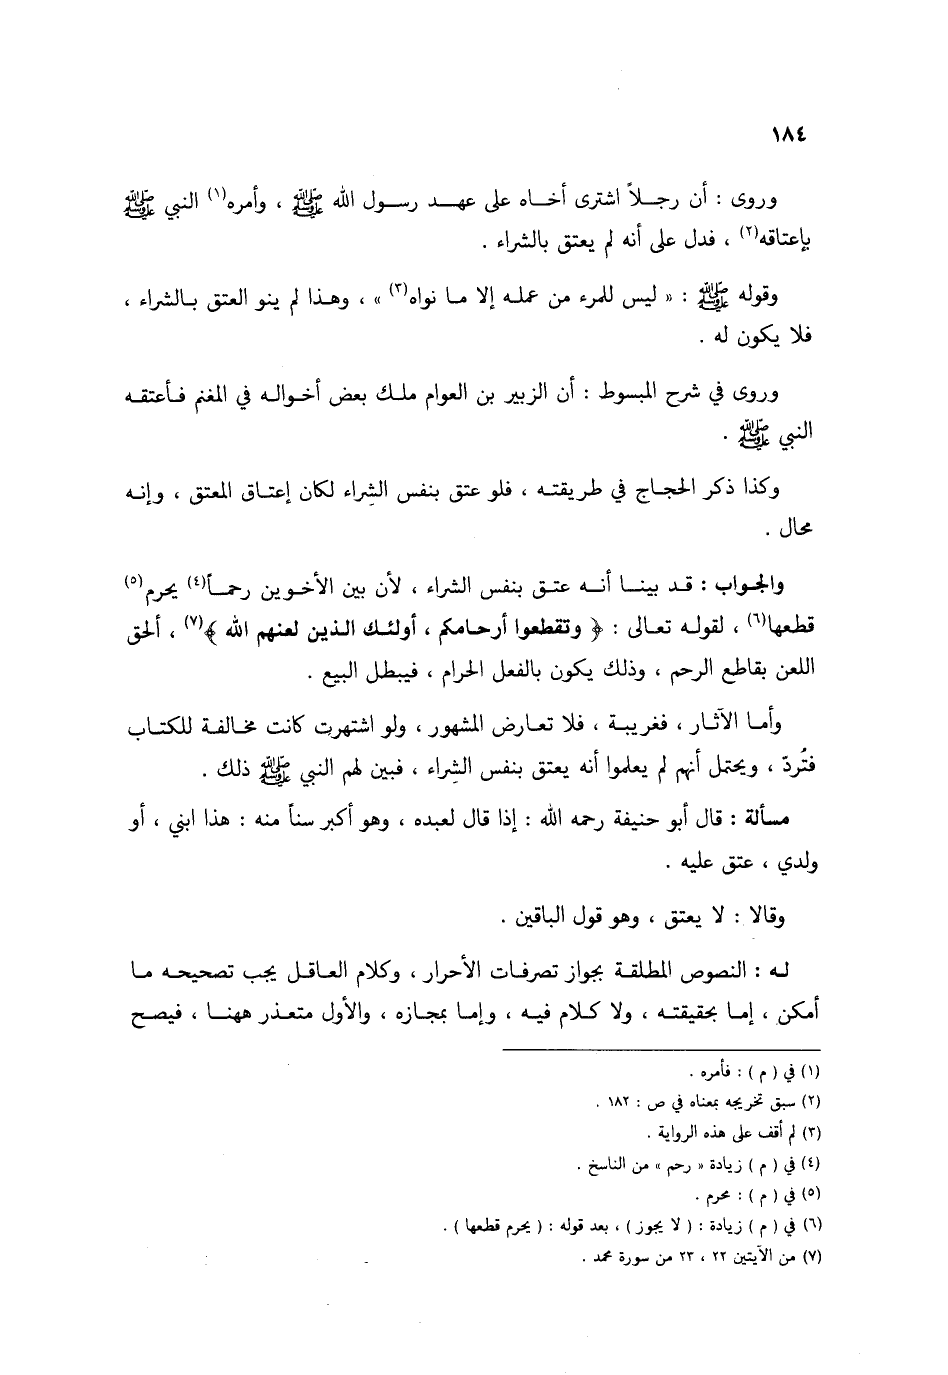 ١٨٤
وروى : أن رجلاً اشترى أخاه على عهد رسول الله ﷺ ، وأمره(١) النبي ﷺ
بإعتاقه(٢) ، فدل على أنه لم يعتق بالشراء .
وقوله ﷺ : « ليس للمرء من عمله إلا ما نواه(٣) » ، وهذا لم ينو العتق بالشراء ،
فلا يكون له .
وروى في شرح المبسوط : أن الزبير بن العوام ملك بعض أخواله في المغنم فأعتقه
النبي ﷺ .
وكذا ذكر الحجاج في طريقته ، فلو عتق بنفس الشراء لكان إعتاق المعتق ، وإنه
محال .
والجواب : قد بينا أنه عتق بنفس الشراء ، لأن بين الأخوين رحماً(٤) يحرم(٥)
قطعها(٦) ، لقوله تعالى : ﴿ وتقطعوا أرحامكم ، أولئك الذين لعنهم الله ﴾(٧) ، ألحق
اللعن بقاطع الرحم ، وذلك يكون بالفعل الحرام ، فيبطل البيع .
وأما الآثار ، فغريبة ، فلا تعارض المشهور ، ولو اشتهرت كانت مخالفة للكتاب
فتُردّ ، ويحتمل أنهم لم يعلموا أنه يعتق بنفس الشراء ، فبين لهم النبي ﷺ ذلك .
مسألة : قال أبو حنيفة رحمه الله : إذا قال لعبده ، وهو أكبر سناً منه : هذا ابني ، أو
ولدي ، عتق عليه .
وقالا : لا يعتق ، وهو قول الباقين .
له : النصوص المطلقة بجواز تصرفات الأحرار ، وكلام العاقل يجب تصحيحه ما
أمكن ، إما بحقيقته ، ولا كلام فيه ، وإما بمجازه ، والأول متعذر ههنا ، فيصح
(١) في ( م ) : فأمره .
(٢) سبق تخريجه بمعناه في ص : ١٨٢ .
(٣) لم أقف على هذه الرواية .
(٤) في ( م ) زيادة « رحم » من الناسخ .
(٥) في ( م ) : محرم .
(٦) في ( م ) زيادة : ( لا يجوز ) ، بعد قوله : ( يحرم قطعها ) .
(٧) من الآيتين ٢٢ ، ٢٣ من سورة محمد .